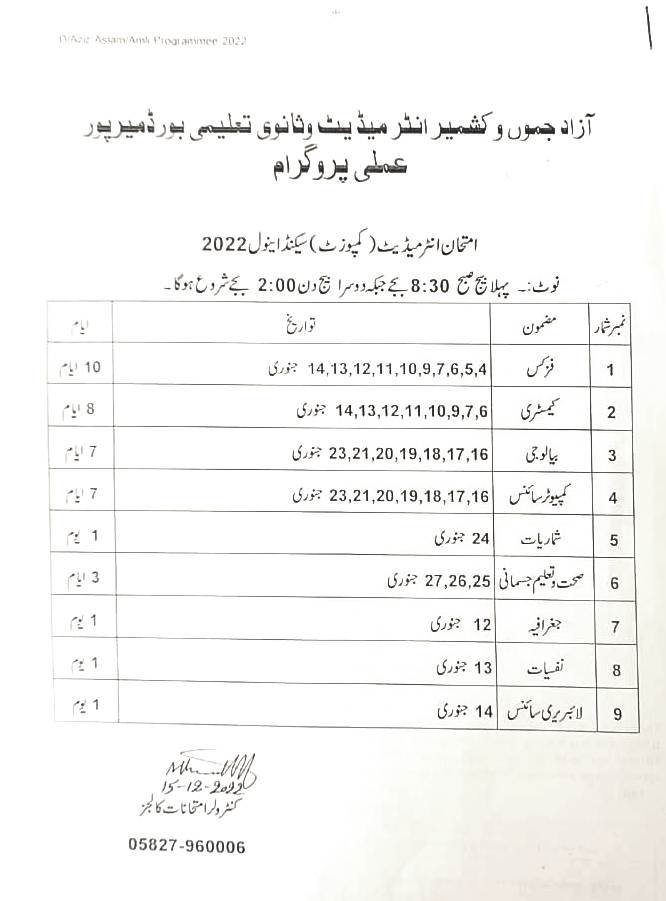 D/Aziz Aslam/Amli Programmee 2022
آزاد جموں و کشمیر انٹر میڈیٹ و ثانوی تعلیمی بورڈ میرپور
عملی پروگرام
امتحان انٹر میڈیٹ (کمپوزٹ) سیکنڈ اینول 2022
نوٹ:۔ پہلا بیج صبح 8:30 بجے جبکہ دوسرا بیج دن 2:00 بجے شروع ہوگا۔
نمبر شمار مضمون تواریخ ایام
1 فزکس 14,13,12,11,10,9,7,6,5,4 جنوری 10 ایام
2 کیمسٹری 14,13,12,11,10,9,7,6 جنوری 8 ایام
3 بیالوجی 23,21,20,19,18,17,16 جنوری 7 ایام
4 کمپیوٹر سائنس 23,21,20,19,18,17,16 جنوری 7 ایام
5 شماریات 24 جنوری 1 یوم
6 صحت و تعلیم جسمانی 27,26,25 جنوری 3 ایام
7 جغرافیہ 12 جنوری 1 یوم
8 نفسیات 13 جنوری 1 یوم
9 لائبریری سائنس 14 جنوری 1 یوم
15-12-2022
کنٹرولر امتحانات کالجز
05827-960006